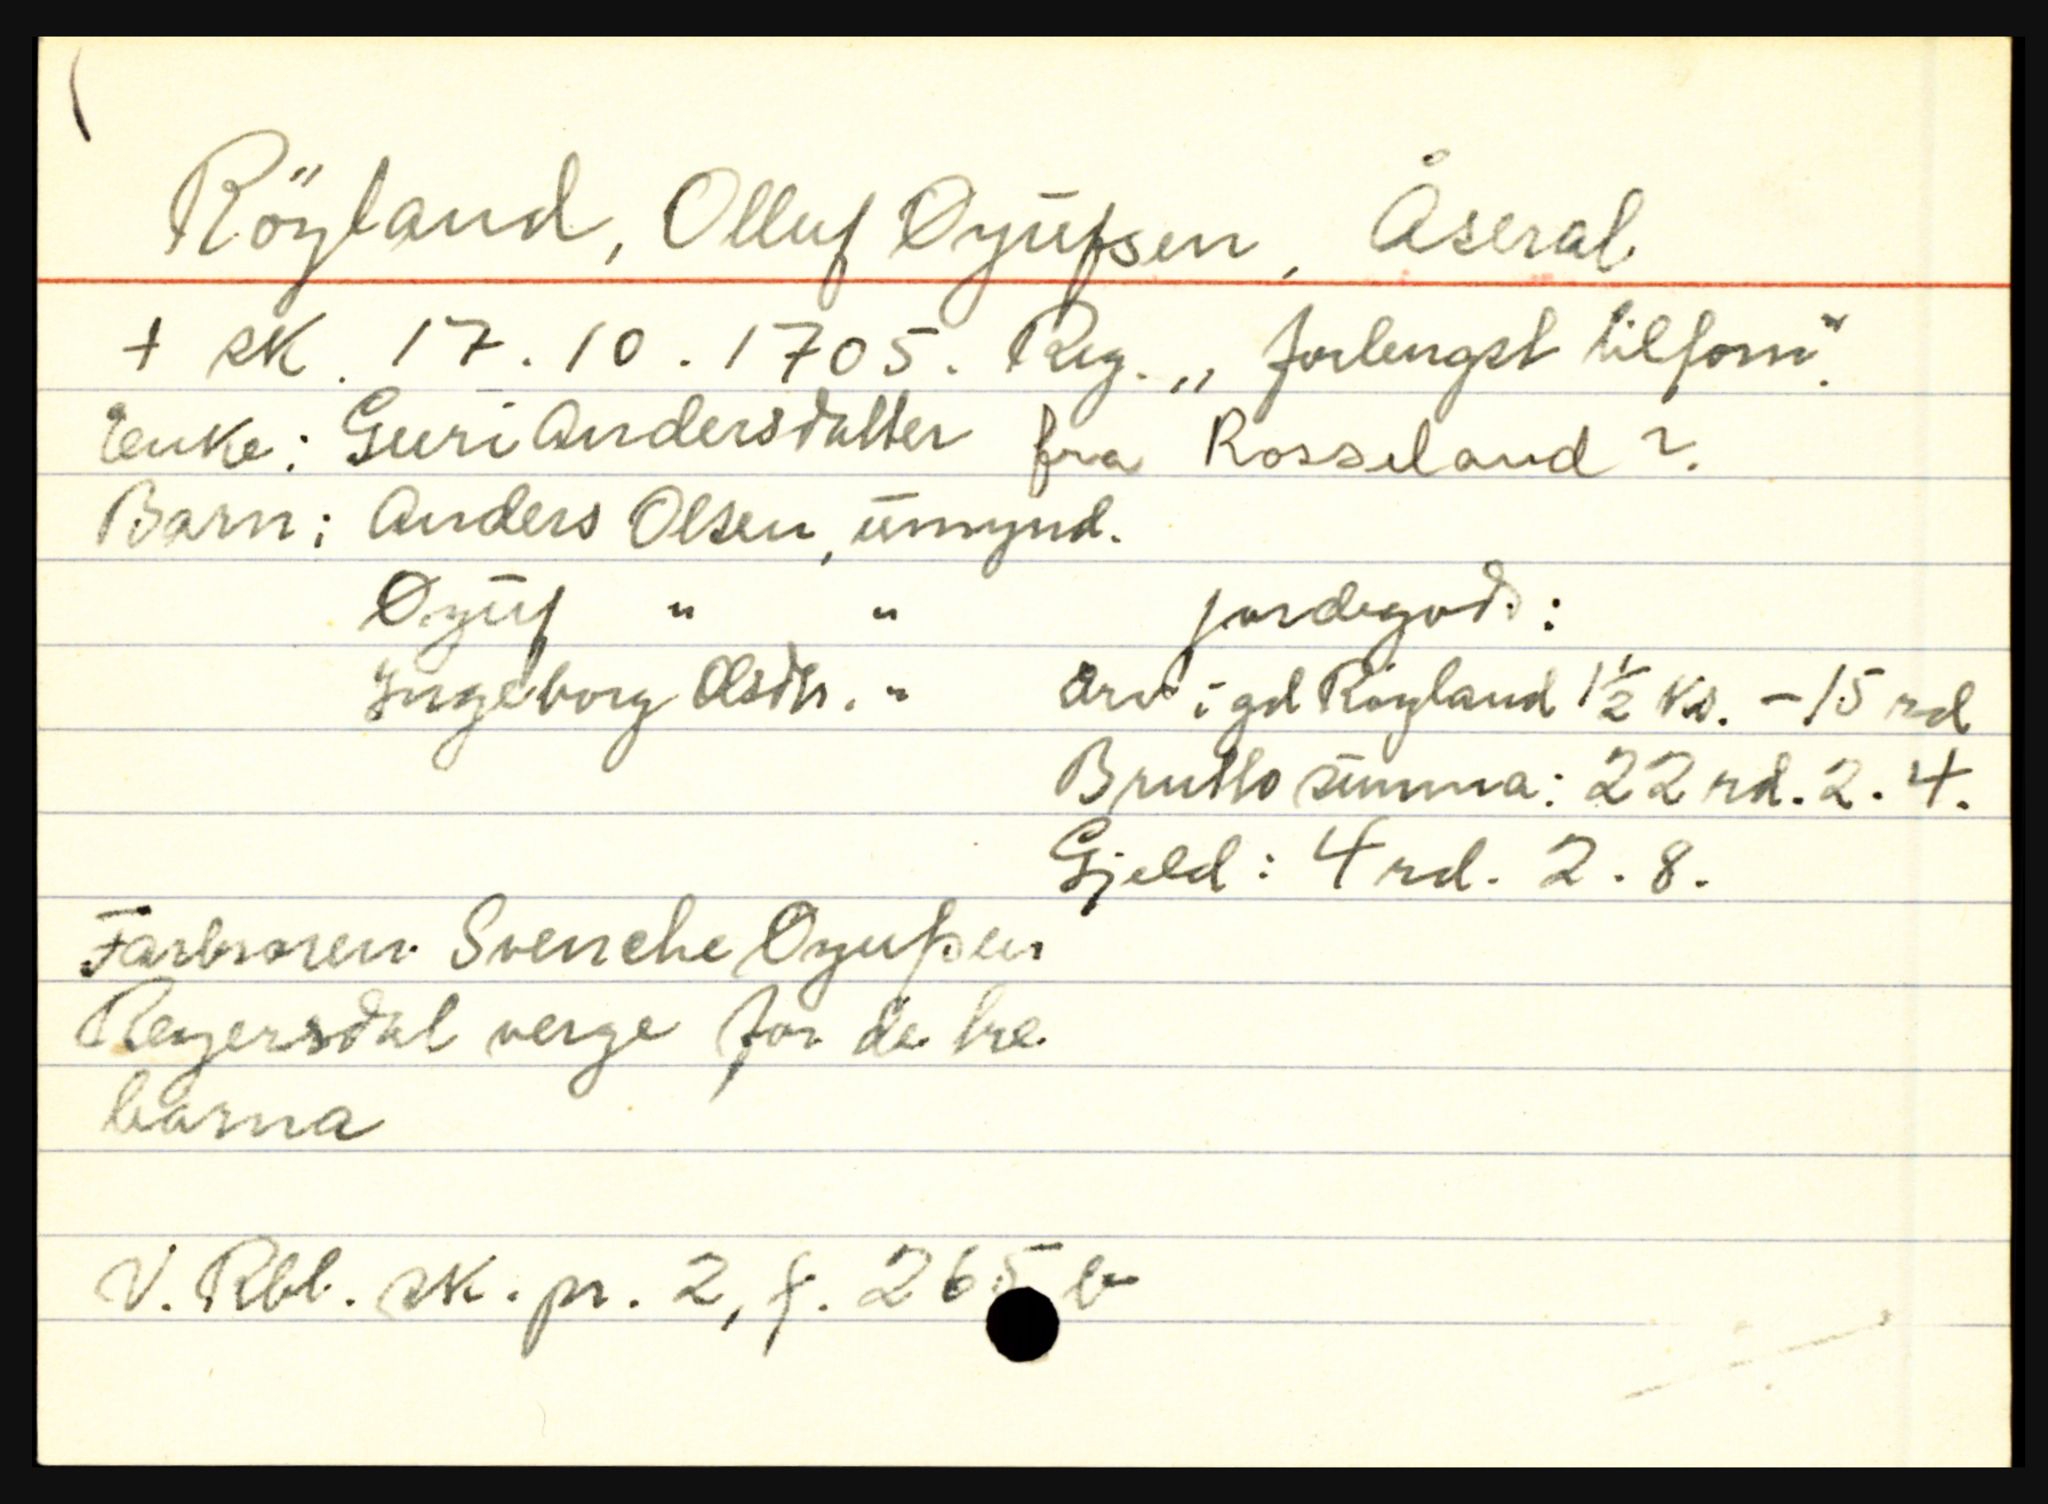 Röyland, Olluf Øyufsen, Åseral
+ sk. 17.10.1705. Reg. „forlengst tilforn".
Enke: Guri Andersdatter fra Rosseland?
Barn: Anders Olsen, umynd.
Øyuf " " jordegods:
Ingeborg Olsdtr. " Arv i gd Röyland 1½ ks. - 15 rd
Brutto summa: 22 rd. 2. 4.
Gjeld: 4 rd. 2. 8.
Farbroren Svenche Øyufsen
Reyersdal verge for de tre
barna
V. Rbl. sk. pr. 2, f. 265 b